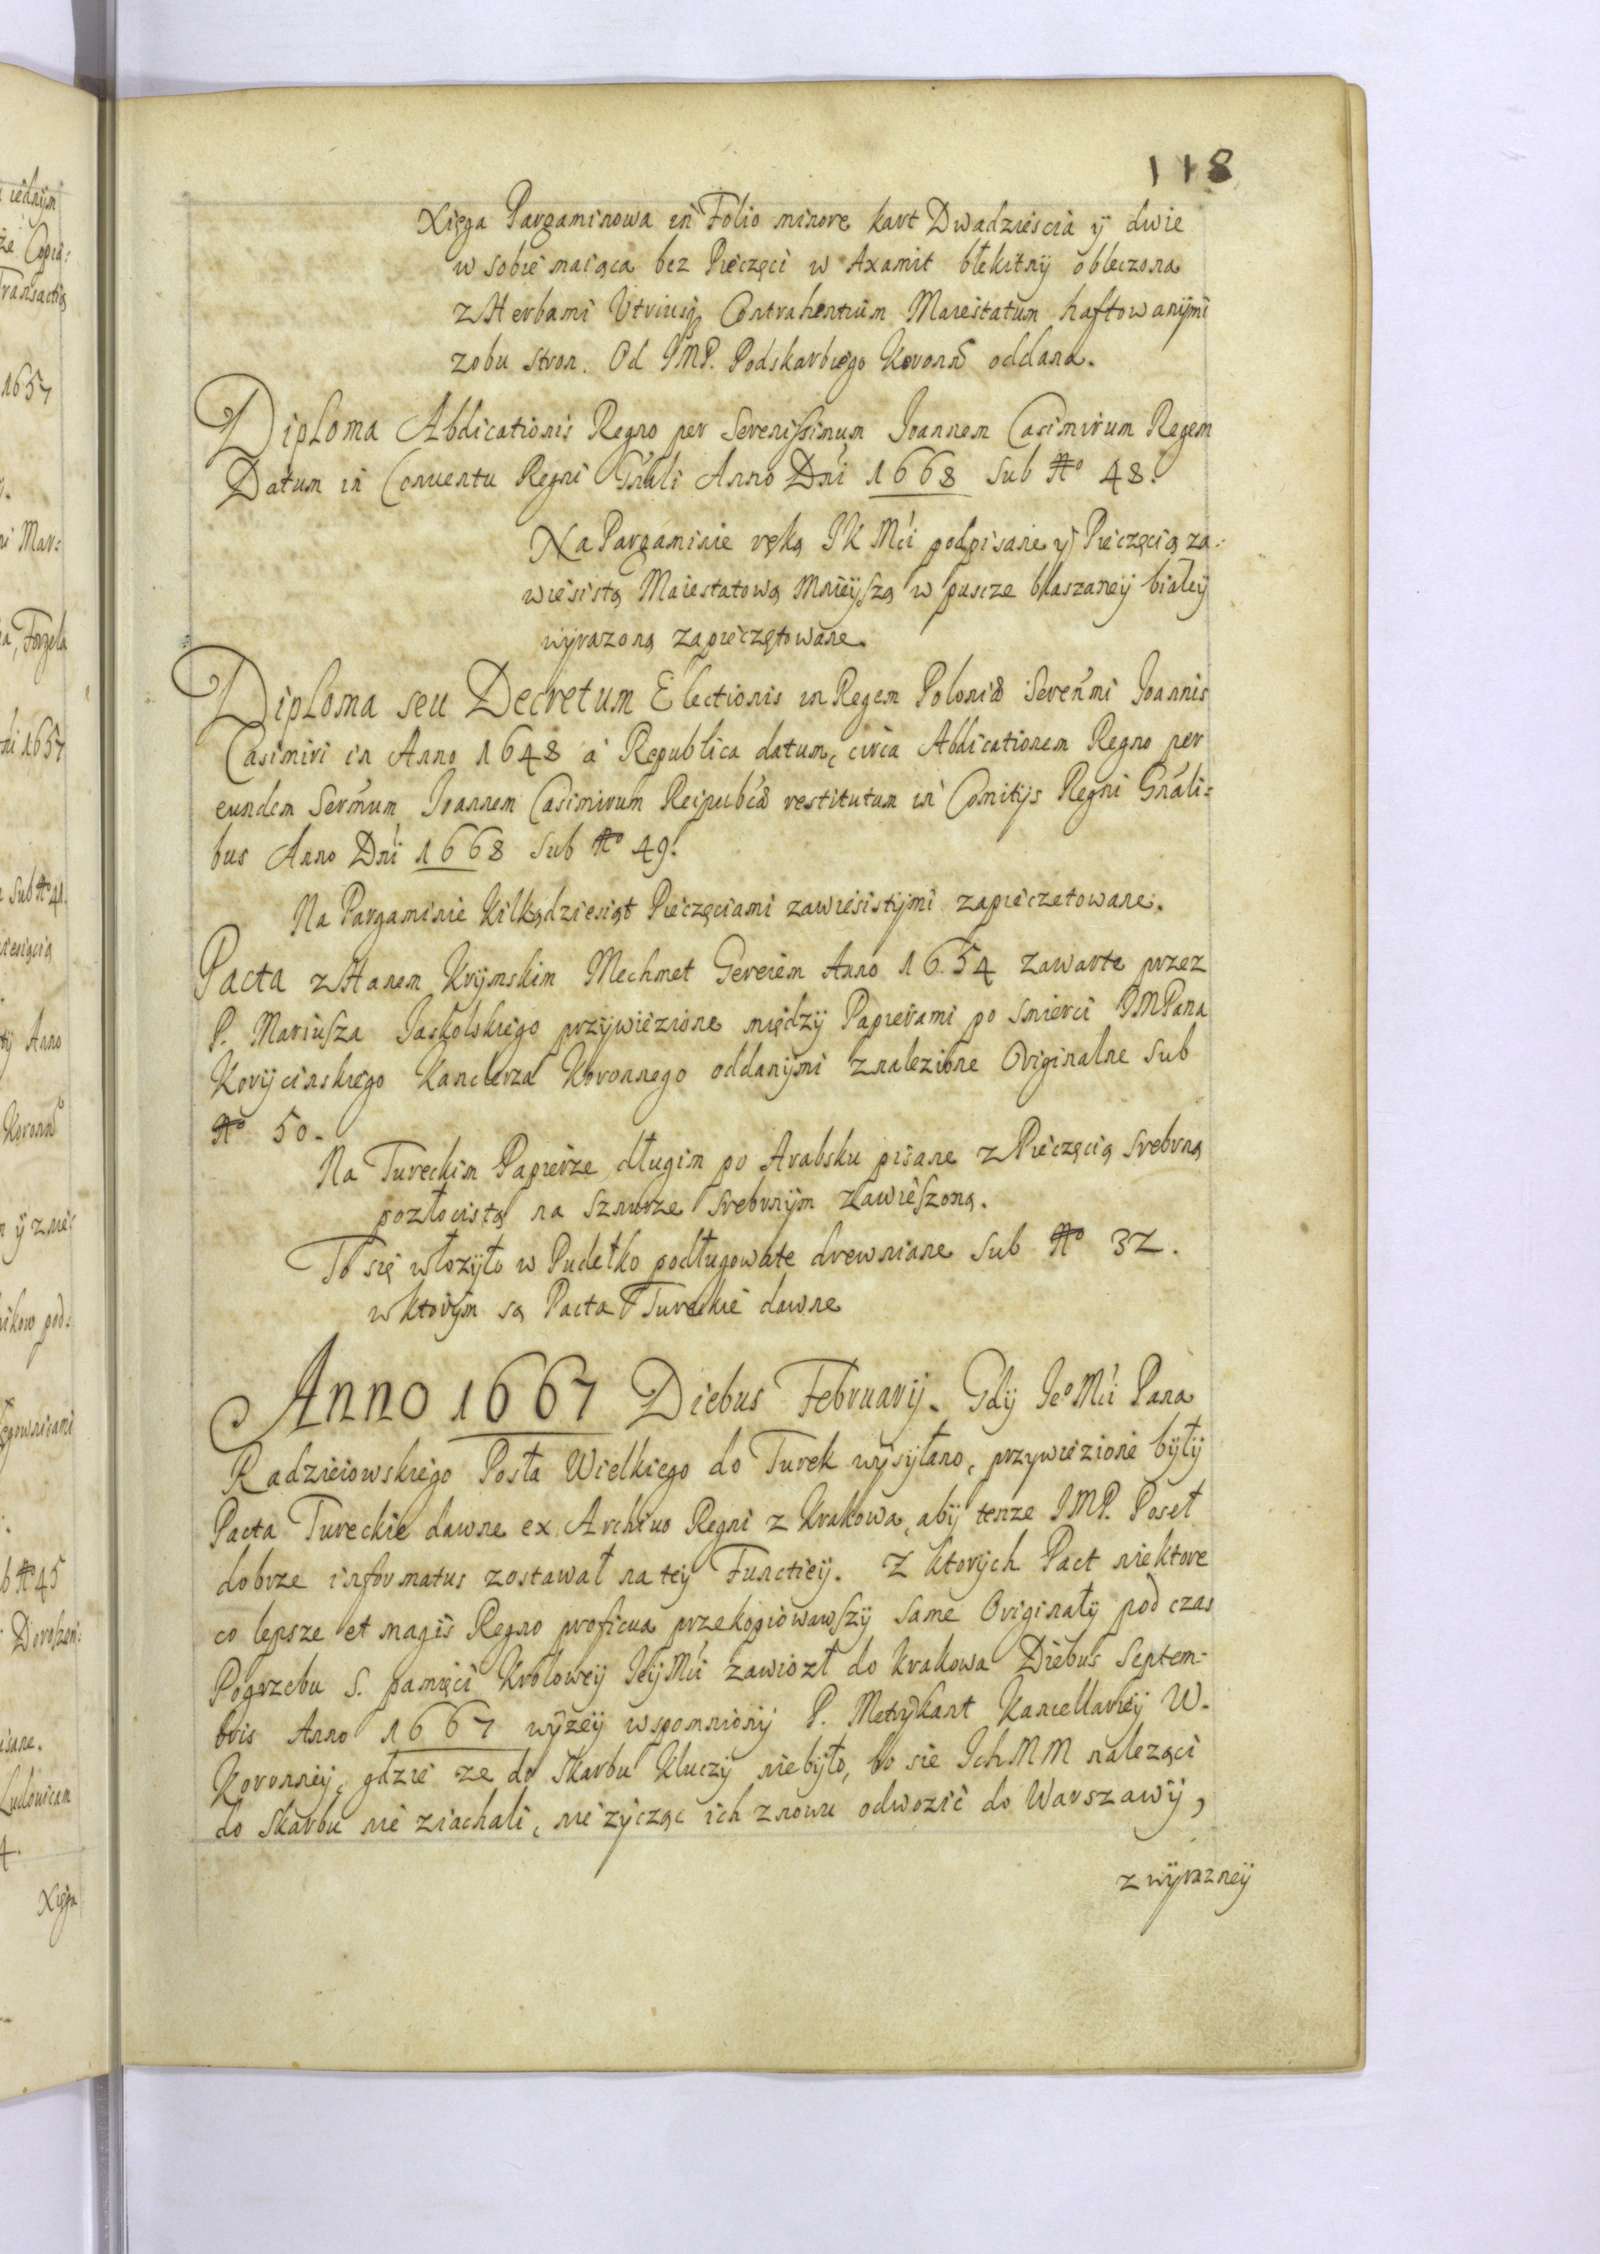 118
Xięga Pargaminowa in Folio minore kart Dwadzieścia y dwie
w sobie maiąca bez Pieczęci w Axamit błekitny obleczona
z Herbami Utriusq Contrahentium Maiestatum haftowanymi
z obu stron. Od JMP. Podskarbiego Koronn oddana.
Diploma Abdicationis Regno per Serenissimum Joannem Casimirum Regem
Datum in Conventu Regni Gnali Anno Dni 1668 sub No 48.
Na Pargaminie ręką JK Mci podpisane y Pieczęcią za-
wiesistą Maiestatową Mnieyszą w puscze blaszaney białey
wyrazoną zapieczętowane.
Diploma seu Decretum Electionis in Regem Poloniæ Serenmi Joannis
Casimiri in Anno 1648 a Republica datum, circa Abdicationem Regno per
eundem Sermum Joannem Casimirum Reipubcæ restitutum in Comitijs Regni Gnali:
bus Anno Dni 1668 sub No 49.
Na Pargaminie Kilkądziesiąt Pieczęciami zawiesistymi zapieczetowane.
Pacta z Hanem Krymskim Mechmet Gereiem Anno 1654 zawarte przez
P. Mariusza Jaskolskiego przywiezione między Papierami po smierci JMPana
Korycinskiego Kanclerza Koronnego oddanymi znalezione Originalne sub
No 50.
Na Tureckim Papierze długim po Arabsku pisane z Pieczęcią srebrną
pozłocistą na sznurze srebrnym zawieszoną.
To się włozyło w Pudełko podługowate drewniane sub No 32.
w ktorym są Pacta Tureckie dawne
Anno 1667 Diebus Februarij. Gdy Jeo Mci Pana
Radzieiowskiego Posła Wielkiego do Turek wysyłano, przywiezione były
Pacta Tureckie dawne ex Archivo Regni z Krakowa, aby tenze JMP. Poseł
dobrze informatus zostawał na tey Functiey. Z ktorych Pact niektore
co lepsze et magis Regno proficua przekopiowawszy same Originały pod czas
Pogrzebu S. pamięci Krolowey Jey Mci zawiozł do Krakowa Diebus Septem-
bris Anno 1667 wyzey wspomniony P. Metrykant Kancellariey W.
Koronney, gdzie ze do Skarbu Kluczy niebyło, bo sie Ich MM nalezący
do Skarbu nie ziachali, nie zycząc ich znowu odwozic do Warszawy,
z wyrazney